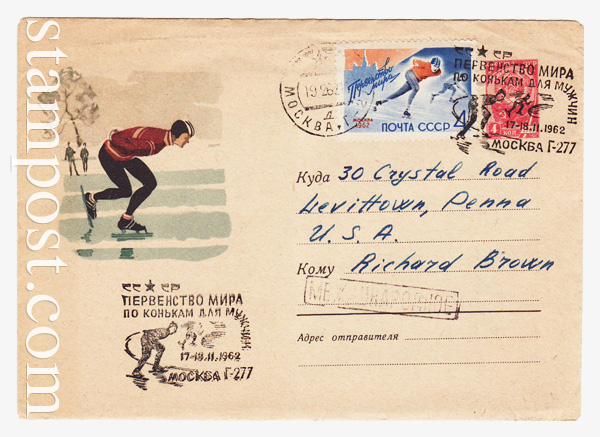 stampost.com
МОСКВА
Первенство
мира
МОСКВА
1962
ПОЧТА СССР
4
ПЕРВЕНСТВО МИРА
ПО КОНЬКАМ ДЛЯ МУЖЧИН
17-18.II.1962
МОСКВА Г-277
Куда 30 Crystal Road
Levittown, Penna
U. S. A.
Кому Richard Brown
МЕЖДУНАРОДНОЕ
Адрес отправителя
ПЕРВЕНСТВО МИРА
ПО КОНЬКАМ ДЛЯ МУЖЧИН
17-18.II.1962
МОСКВА Г-277